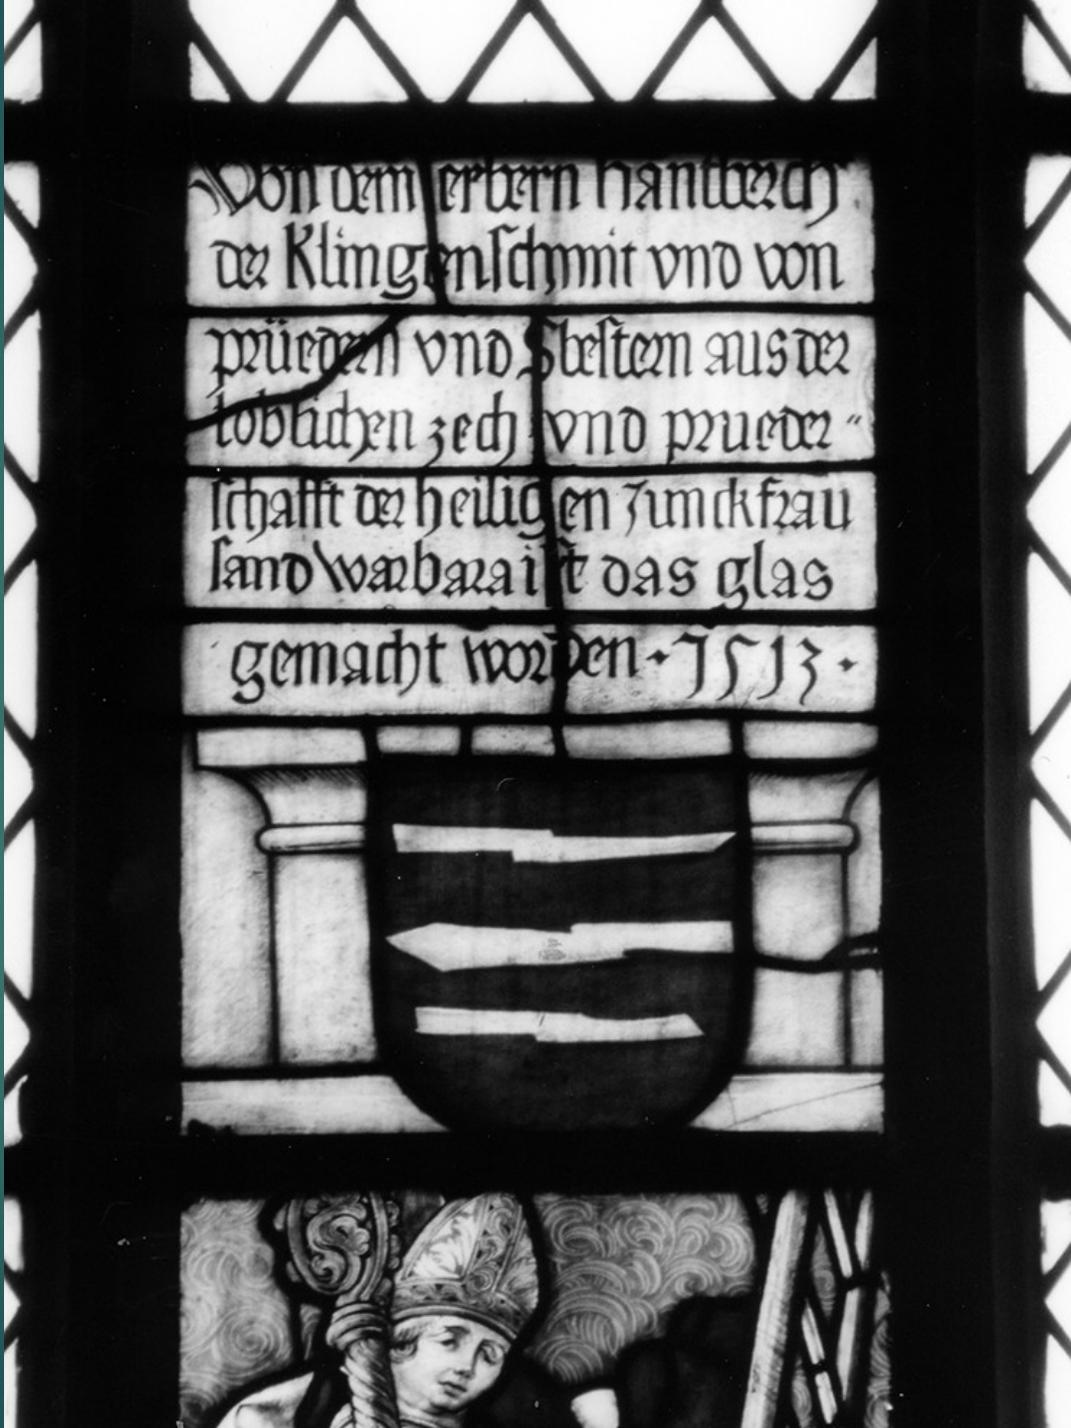 Von dem erbern hantberch
der Klingenschmit vnd von
prüedern vnd Sbestern aus der
loblichen zech vnd prueder"
schafft der heiligen Junckfrau
sand warbara ist das glas
gemacht worden · 1513 ·